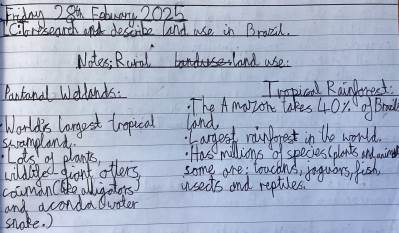 Friday 28th February 2025
LC: research and describe land use in Brazil.
Notes: Rural land use:
Pantanal Wetlands:
• World's largest tropical
swampland.
• Lots of plants,
wildlife giant otters,
caiman (like aligators)
and aconda (water
snake.)
Tropical Rainforest:
• The Amazon takes 40% of Brazil
land.
• Largest rainforest in the world.
• Has millions of species (plants and animals
some are: toucans, jaguars, fish,
insects and reptiles.